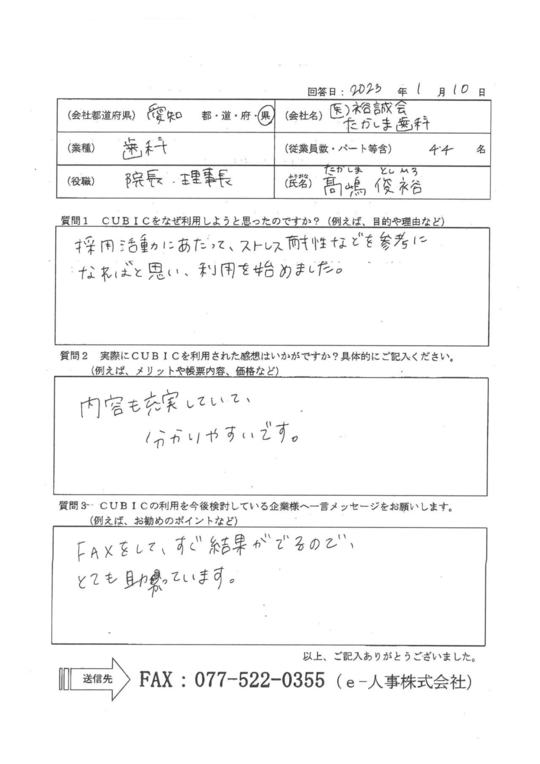 回答日：2023 年 1 月 10 日
(会社都道府県) 愛知 都・道・府・県
(会社名) (医)裕誠会
たかしま歯科
(業種) 歯科
(従業員数・パート等含) 44 名
(役職) 院長・理事長
たかしま としひろ
(氏名) 髙嶋 俊裕
質問１ ＣＵＢＩＣをなぜ利用しようと思ったのですか？（例えば、目的や理由など）
採用活動にあたって、ストレス耐性などを参考に
なればと思い、利用を始めました。
質問２ 実際にＣＵＢＩＣを利用された感想はいかがですか？具体的にご記入ください。
（例えば、メリットや帳票内容、価格など）
内容も充実していて、
分かりやすいです。
質問３ ＣＵＢＩＣの利用を今後検討している企業様へ一言メッセージをお願いします。
（例えば、お勧めのポイントなど）
FAXをして、すぐ結果がでるので、
とても助かっています。
以上、ご記入ありがとうございました。
送信先 FAX：077-522-0355（e-人事株式会社）